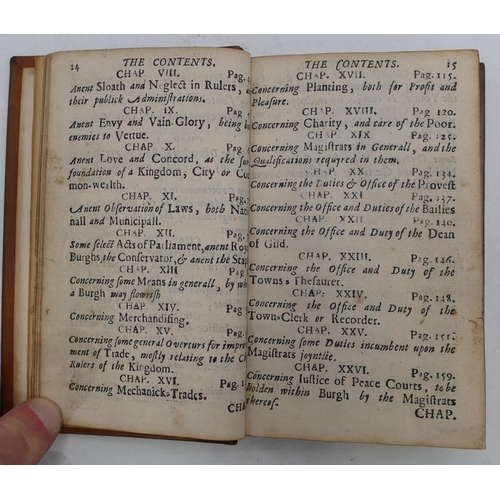 14 THE CONTENTS.
CHAP VIII. Pag.
Anent Sloath and Neglect in Rulers,
their publick Administrations.
CHAP. IX. Pag
Anent Envy and Vain Glory, being
enemies to Vertue.
CHAP. X. Pag.
Anent Love and Concord, as the
foundation of a Kingdom, City or
mon-wealth.
CHAP. XI. Pag.
Anent Observation of Laws, both
nall and Municipall.
CHAP. XII. Pag.
Some select Acts of Parliament, anent
Burghs, the Conservator, & anent the
CHAP. XIII Pag.
Concerning some Means in generall, by
a Burgh may flowrish
CHAP. XIV. Pag.
Concerning Merchandising.
CHAP. XV. Pag.
Concerning some general Overturs for
ment of Trade, mostly relating to the
Rulers of the Kingdom.
CHAP. XVI. Pag.
Concerning Mechanick-Trades.
CHAP.
THE CONTENTS. 15
CHAP. XVII. Pag. 115.
Concerning Planting, both for Profit and
Pleasure.
CHAP. XVIII. Pag 120.
Concerning Charity, and care of the Poor.
CHAP. XIX Pag. 125.
Concerning Magistrats in Generall, and the
Qualifications requyred in them.
CHAP. XX Pag. 134.
Concerning the Duties & Office of the Provest
CHAP. XXI Pag. 137.
Concerning the Office and Duties of the Bailies
CHAP. XXII Pag. 140.
Concerning the Office and Duty of the Dean
of Gild.
CHAP. XXIII. Pag. 146.
Concerning the Office and Duty of the
Towns Thesaurer.
CHAP. XXIV. Pag. 148.
Concerning the Office and Duty of the
Town-Clerk or Recorder.
CHAP. XXV. Pag. 151.
Concerning some Duties incumbent upon the
Magistrats joyntlie.
CHAP. XXVI. Pag. 159.
Concerning Iustice of Peace Courts, to be
holden within Burgh by the Magistrats
thereof.
CHAP.